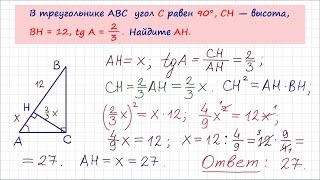 В треугольнике ABC угол C равен 90°, CH — высота,
BH = 12, tg A = 2/3. Найдите AH.
B
12
H
x
2/3 x
A
C
AH = x; tg A = CH/AH = 2/3;
CH = 2/3 AH = 2/3 x. CH² = AH · BH,
(2/3 x)² = x · 12; 4/9 x² = 12x
4/9 x = 12; x = 12 : 4/9 = 12 · 9/4 =
= 27. AH = x = 27. Ответ: 27.